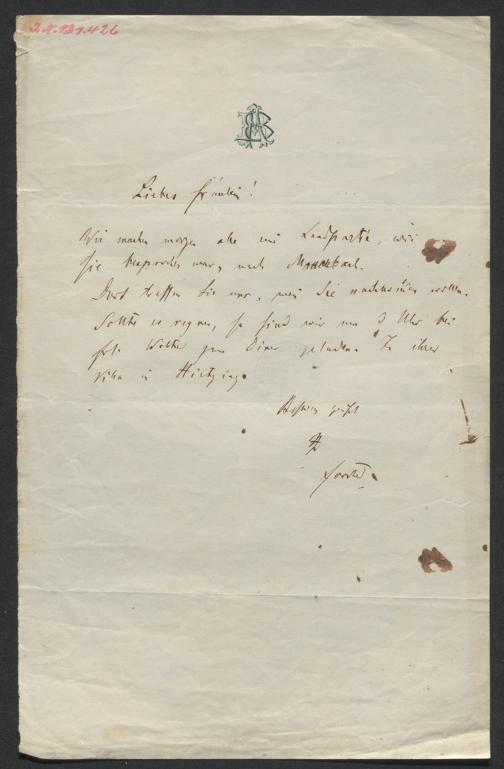 I.N. 131.426
Liebes Fräulein!
Wir machen morgen also eine Landpartie, wie
Sie besprochen war, nach Mauerbach.
Dort treffen Sie uns, wenn Sie wollen.
Sollte es regnen, so sind wir um 3 Uhr bei
Frl. Wolter zum Diner geladen. In ihrer
Villa in Hietzing.
grüßt